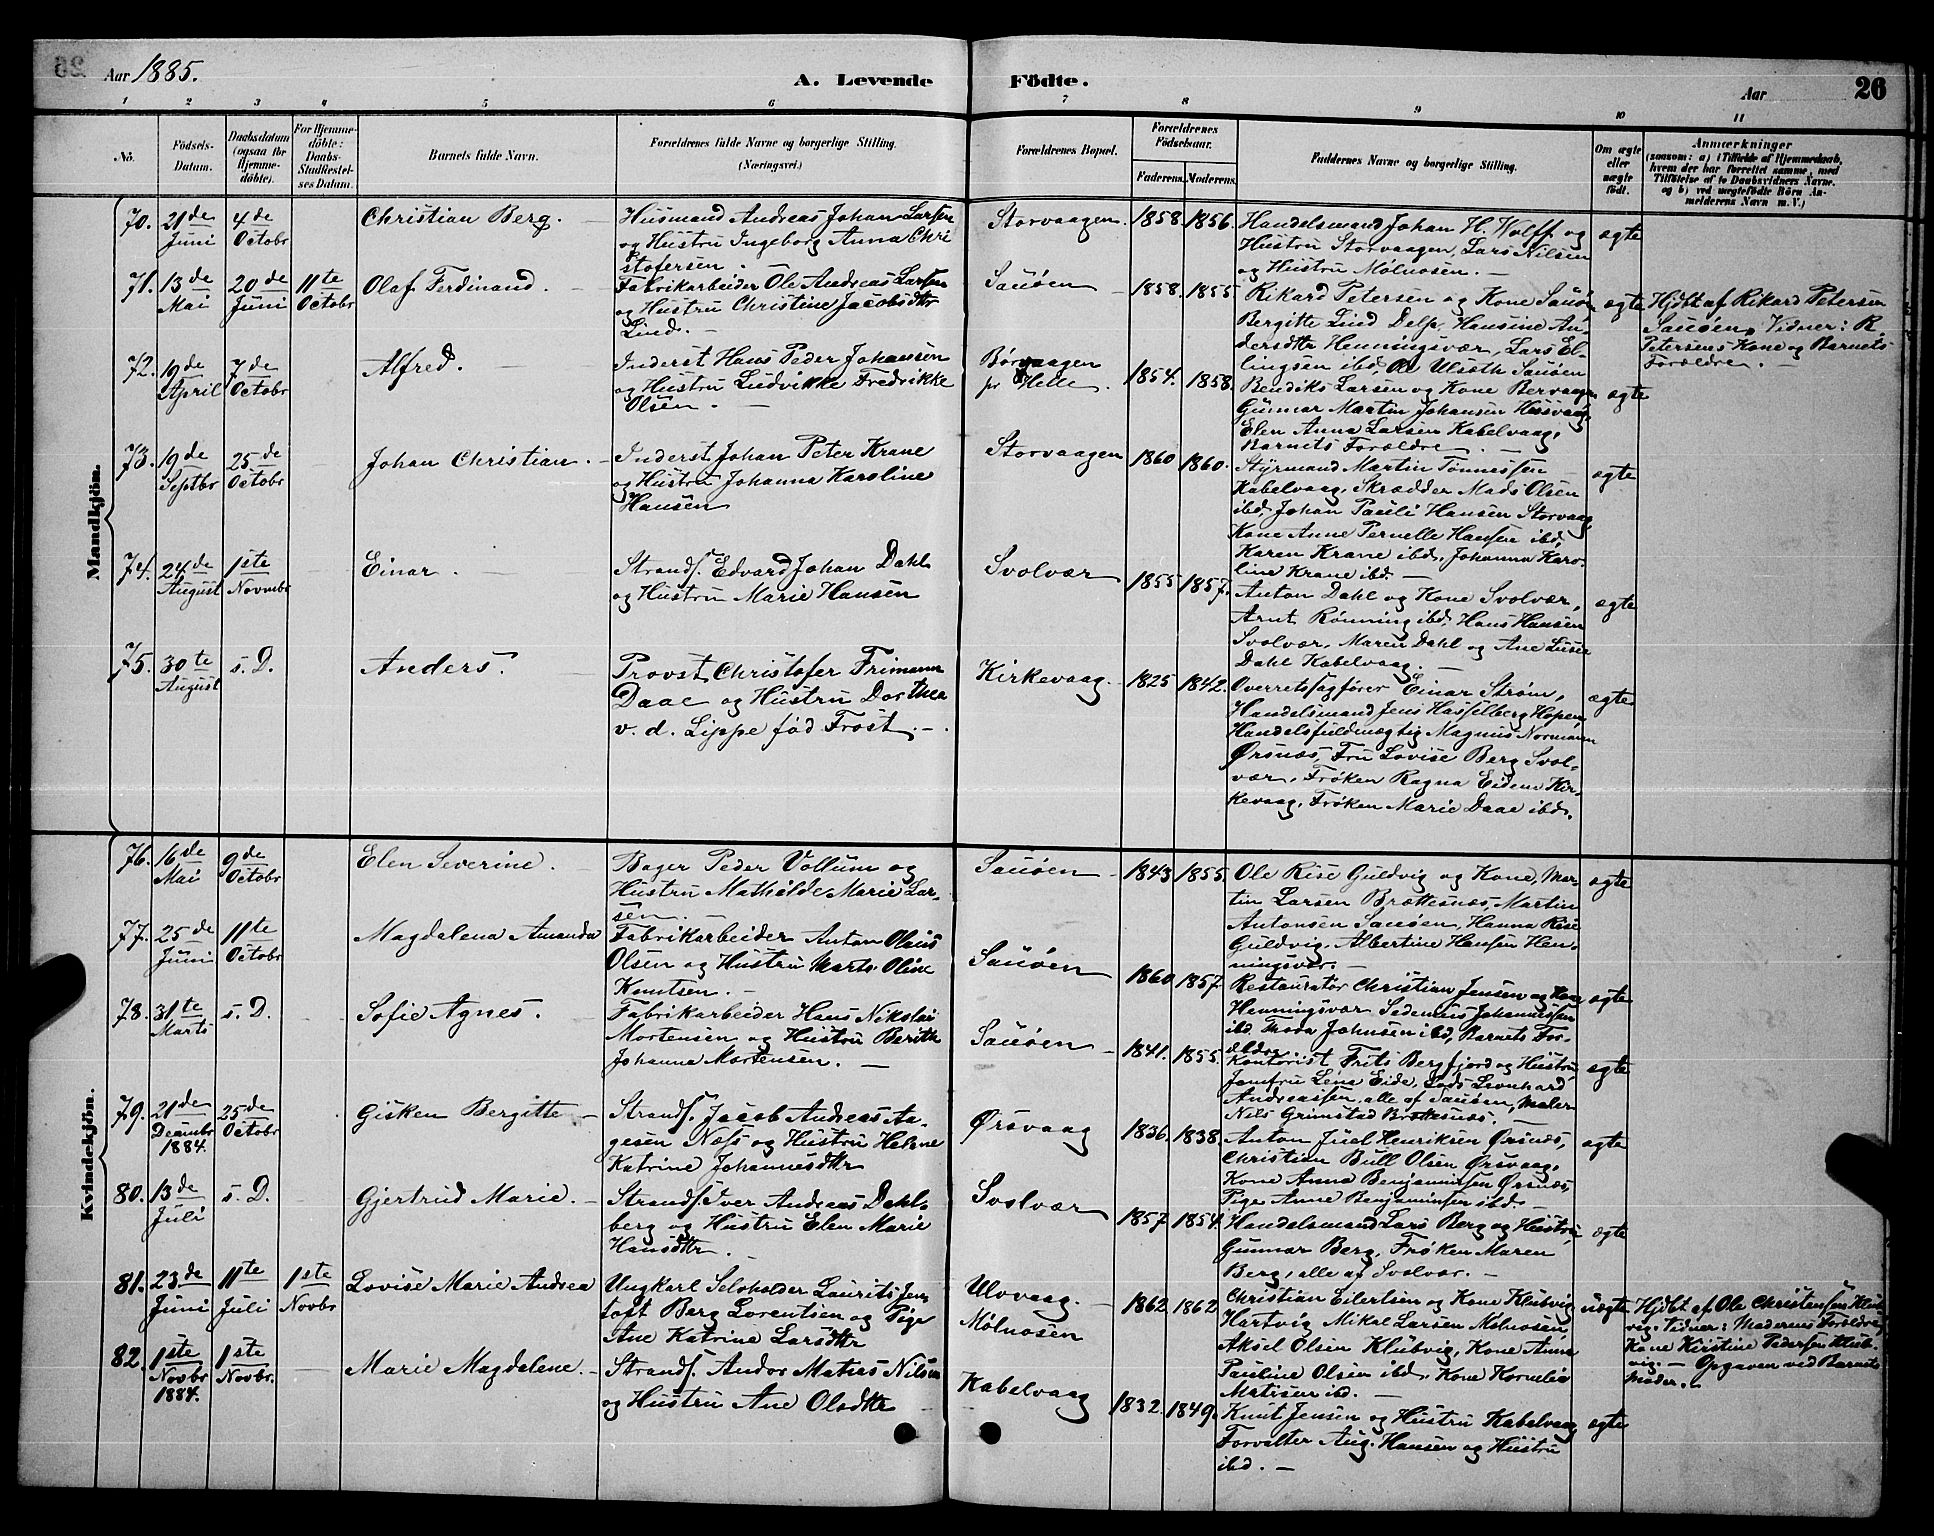 26
Aar 1885.
A. Levende Födte.
Aar
26
1 2 3 4 5 6 7 8 9 10 11
Nö.
Födsels-
Datum.
Daabsdatum
(ogsaa for
Hjemme-
döbte).
For Hjemme-
döbte:
Daabs-
Stadfæstel-
ses Datum.
Barnets fulde Navn.
Forældrenes fulde Navne og borgerlige Stilling.
(Næringsvei.)
Forældrenes Bopæl.
Forældrenes
Födselsaar.
Faderens. Moderens.
Faddernes Navne og borgerlige Stilling.
Om ægte
eller
uægte
født.
Anmærkninger
(saasom: a) i Tilfælde af Hjemmedaab,
hvem der har forrettet samme, med
Tilföielse af to Daabsvidners Navne,
og b) ved uægtefödte Börn An-
melderens Navn m. V.)
Mandkjön.
70. 21de Juni 4de Octobr Christian Berg. –
Husmand Andreas Johan Larsen
og Hustru Ingeborg Anna Chri
stofersen.
Storvaagen 1858 1856.
Handelsmand Johan H. Wolff og
Hustru Storvaagen, Lars Nilsen
og Hustru Mølnosen. –
ægte
71. 13de Mai 20de Juni 11te Octobr Olaf Ferdinand. –
Fabrikarbeider Ole Andreas Larsen
og Hustru Christine Jacobsdtr
Lind. –
Sauöen – 1858. 1855.
Rikard Petersen og Kone Sauön
Bergitte Lind Delp, Hansine An-
dersdtr Henningsvær, Lars El-
lingsen ibd, Ole Ulseth Sauöen
ægte
Hjdbt af Rikard Petersen
Sauöen, Vidner: R.
Petersens Kone og Barnets
Forældre. –
72. 19de April 7de Octobr Alfred. –
Inderst Hans Peder Johansen
og Hustru Ludvikke Fredrikke
Olsen. –
Børvaagen
pr Helle. 1854. 1858.
Bendiks Larsen og Kone Bervaagen
Gunnar Martin Johansen
Elen Anna Larsen Kabelvaag,
Barnets Forældre –
ægte
73. 19de Septbr 25de Octobr Johan Christian. –
Inderst Johan Peter Krane
og Hustru Johanna Karoline
Hansen
Storvaagen 1860 1860.
Styrmand Martin Tønnessen
Kabelvaag, Skrædder Mads Olsen
ibd, Johan Pauli Hansen Storvaag,
Kone Anne Pernelle Hansen ibd,
Karen Krane ibd, Johanna Karo-
line Krane ibd. –
ægte
74. 24de August 1ste Novmbr Einar. –
Strands. Edvard Johan Dahl
og Hustru Marie Hansen
Svolvær 1855 1857.
Anton Dahl og Kone Svolvær,
Arnt Rönning ibd, Hans Hansen
Svolvær, Maren Dahl og Ane Lusie
Dahl Kabelvaag. –
ægte
75. 30te August s. D. Anders. –
Provst Christofer Frimann
Daae og Hustru Dorthea
v. d. Lippe fød Frost. –
Kirkevaag. 1825 1842.
Overretssagfører Einar Strøm,
Handelsmand Jens Hasselberg Hopen,
Handelsfuldmægtig Magnus Normann
Ørsnæs, Fru Lovise Berg Svol-
vær, Frøken Ragna Eidem Kir-
kevaag, Frøken Marie Daae ibd.
ægte
Kvindekjön.
76. 16de Mai 9de Octobr Elen Severine. –
Bager Peder Vollum og
Hustru Mathilde Marie Lar-
sen. –
Sauöen – 1843 1855.
Ole Rise Guldvig og Kone, Mar-
tin Larsen Brættesnæs, Martin
Antonsen Sauöen, Hanna Rise
Guldvig, Albertine Hansen Hen-
ningsvær. –
ægte
77. 25de Juni 11te Octobr Magdalena Amanda
Fabrikarbeider Anton Olaus
Olsen og Hustru Marta Oline
Knutsen. –
Sauöen 1860 1857
Restauratør Christian Jensen og Kone
Henningsvær Johannessen
ibd, Johnsen ibd, Barnets For-
ældre
ægte
78. 31te Marts s. D. Sofie Agnes.
Fabrikarbeider Hans Nikolai
Mortensen og Hustru Berith
Johanna Mortensen. –
Sauöen – 1841. 1855.
Kontorist Frits Bergfjord og Hustru
Jomfru Lena Eide, Lods Leonhard
Andreassen, alle af Sauöen, Maler
Nils Grimstad Brættesnæs. –
ægte
79. 21de Decmbr 1884. 25de Octobr Gisken Bergitte –
Strands. Jacob Andreas Aa-
gesen Næss og Hustru Helene
Katrine Johannesdtr
Ørsvaag 1836. 1838.
Anton Juel Henriksen Ørsnæs,
Christian Bull Olsen Ørsvaag,
Kone Anna Benjaminsen Ørsnæs,
Pige Anne Benjaminsen ibd. –
ægte
80. 13de Juli s. D. Gjertrud Marie. –
Strands. Iver Andreas Dahl-
berg og Hustru Elen Marie
Hansdtr. –
Svolvær 1857 1854.
Handelsmand Lars Berg og Hustru,
Gunnar Berg, Frøken Maren
Berg, alle af Svolvær. –
ægte
81. 23de Juni 11te Juli 1ste Novbr Lovise Marie Andrea
Ungkarl Selvholder Laurits Jen
toft Berg Lorentsen og Pige
Ane Katrine Larsdtr
Ulvaag. –
Mølnosen 1862 1862
Christian Eilertsen og Kone Klubvig
Hartvig Mikal Larsen Mølnosen,
Aksel Olsen Klubvig, Kone Anna
Pauline Olsen ibd, Kone Kornelia
Matisen ibd. –
uægte
Hjdbt af Ole Christensen Klub-
vig. Vidner: Moderens Forældre,
Kone Kirstine Pedersen Klub-
vig. – Opgaven ved Barnets
Moder. –
82. 1ste Novbr 1884. 1ste Novbr. Marie Magdalene. –
Strands. Andor Matias Nilsen
og Hustru Ane Olsdtr
Kabelvaag 1832. 1849.
Knut Jensen og Hustru Kabelvaag,
Forvalter Aug. Hansen og Hustru
ibd. –
ægte